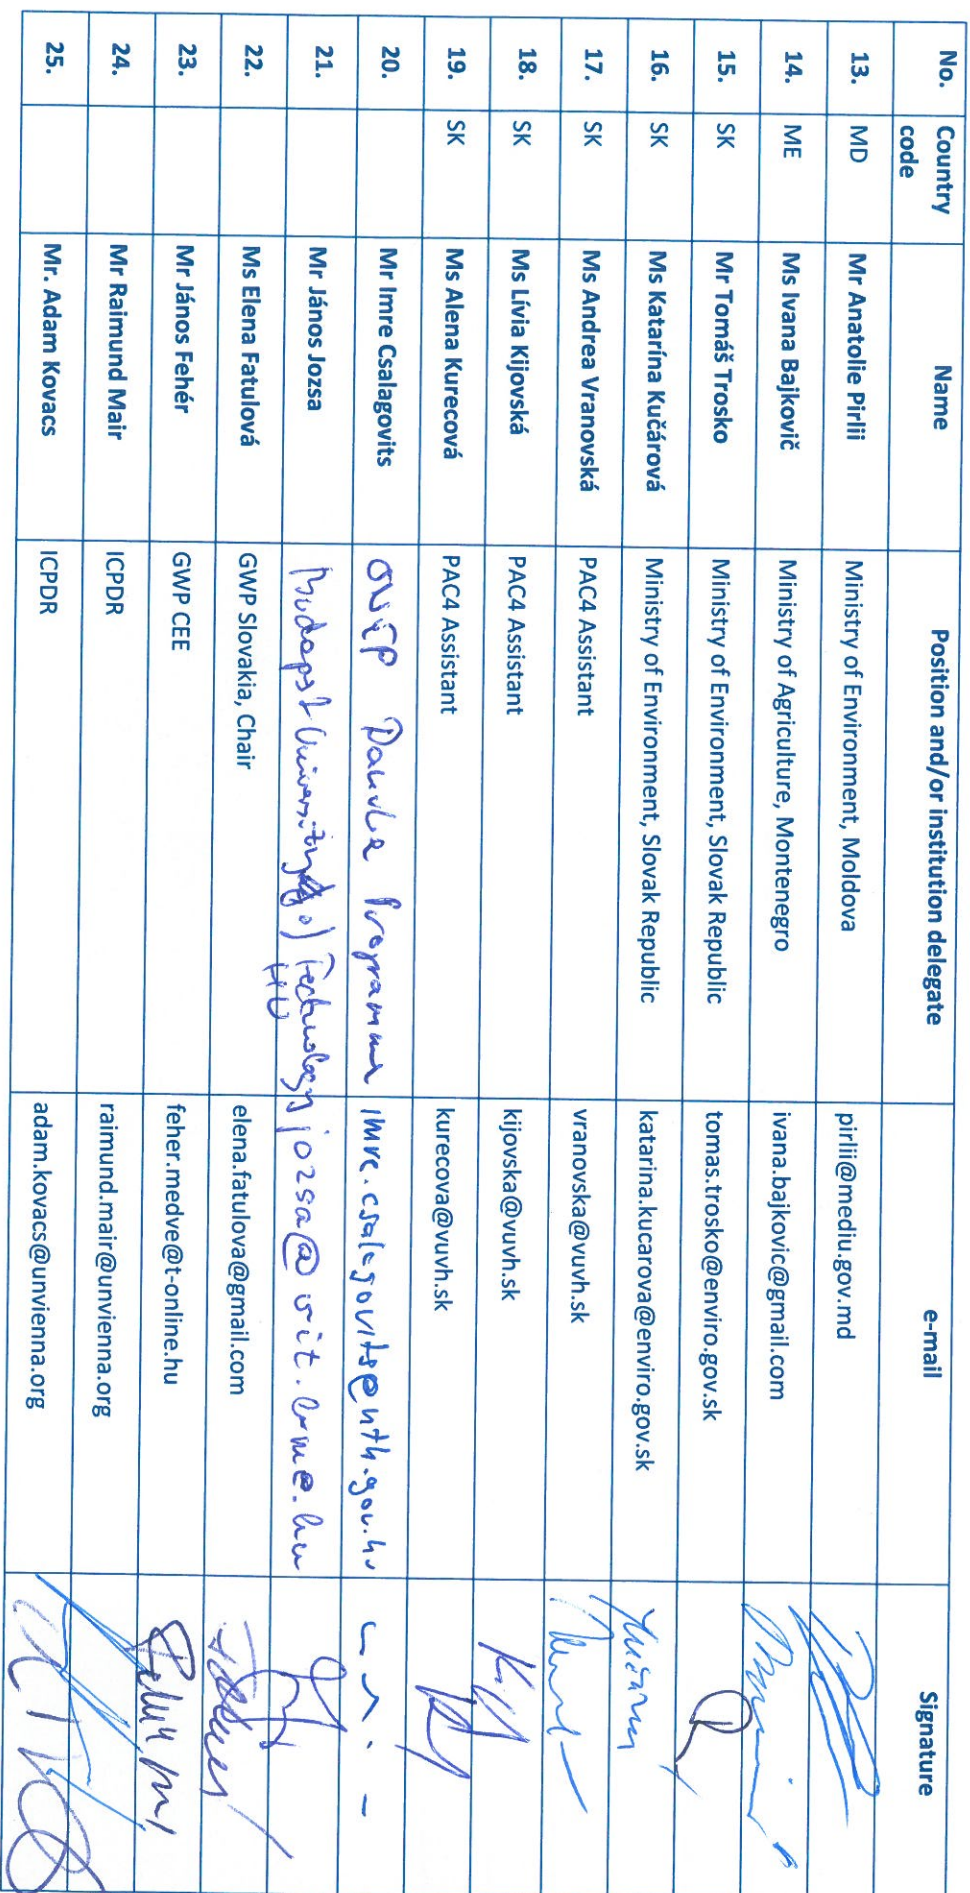 No. Country code Name Position and/or institution delegate e-mail Signature
13. MD Mr Anatolie Pirlii Ministry of Environment, Moldova pirlii@mediu.gov.md
14. ME Ms Ivana Bajkovič Ministry of Agriculture, Montenegro ivana.bajkovic@gmail.com
15. SK Mr Tomáš Trosko Ministry of Environment, Slovak Republic tomas.trosko@enviro.gov.sk
16. SK Ms Katarína Kučárová Ministry of Environment, Slovak Republic katarina.kucarova@enviro.gov.sk
17. SK Ms Andrea Vranovská PAC4 Assistant vranovska@vuvh.sk
18. SK Ms Lívia Kijovská PAC4 Assistant kijovska@vuvh.sk
19. SK Ms Alena Kurecová PAC4 Assistant kurecova@vuvh.sk
20. Mr Imre Csalagovits Programme imre.csalagovits@nth.gov.hu
21. Mr János Jozsa Budapest University of Technology HU jozsa@vit.bme.hu
22. Ms Elena Fatulová GWP Slovakia, Chair elena.fatulova@gmail.com
23. Mr János Fehér GWP CEE feher.medve@t-online.hu
24. Mr Raimund Mair ICPDR raimund.mair@unvienna.org
25. Mr. Adam Kovacs ICPDR adam.kovacs@unvienna.org